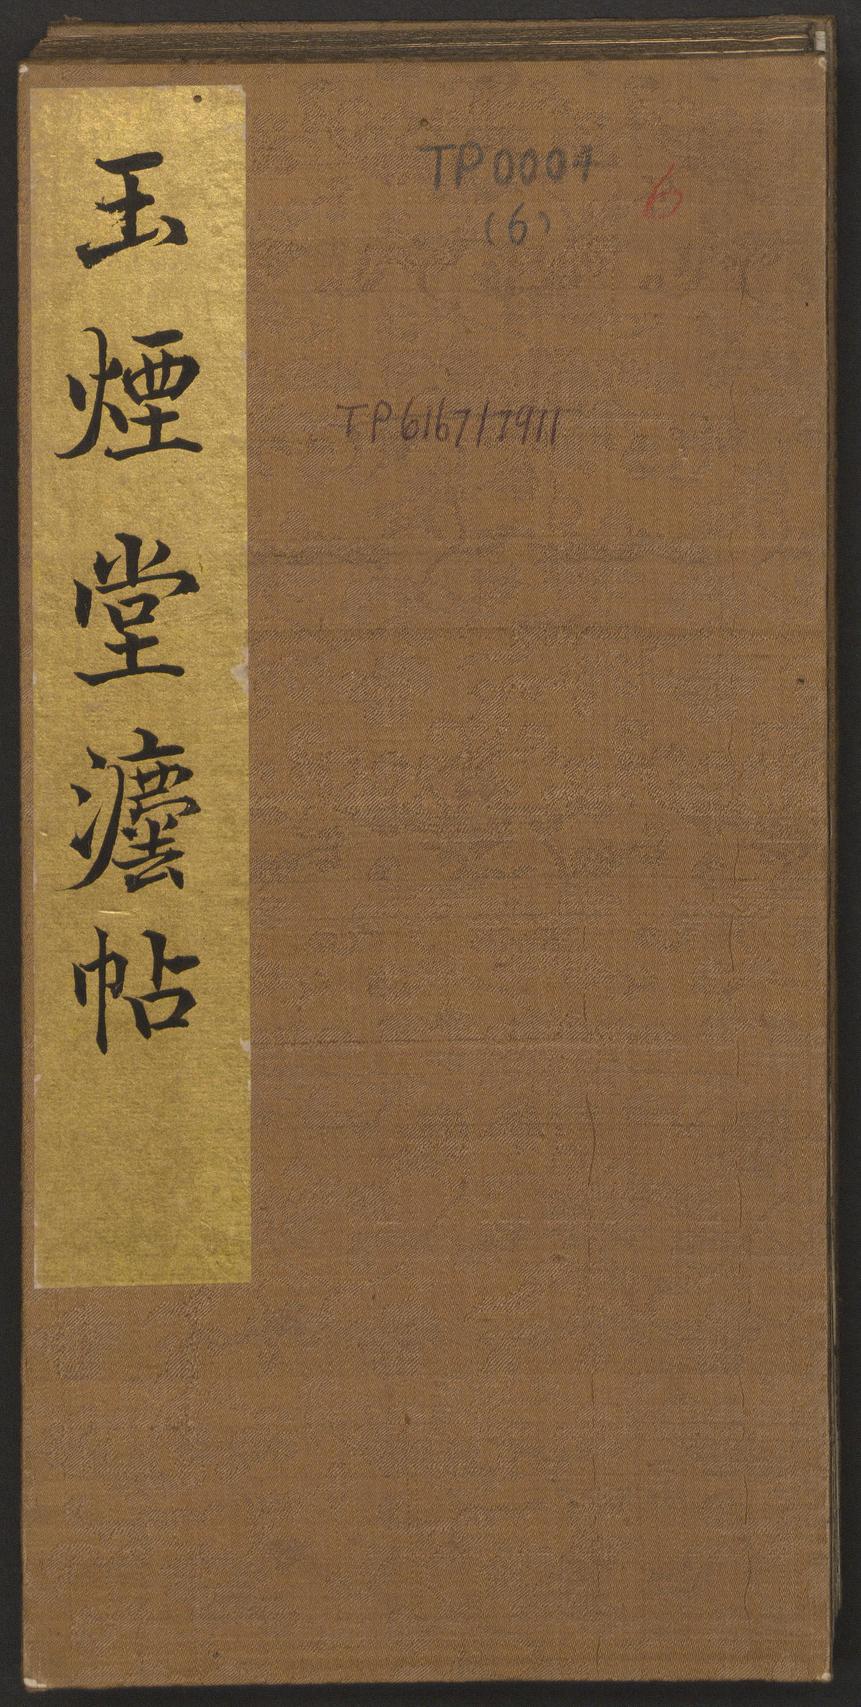 玉煙堂灋帖
TP0004
(6)
6
TP6167/7911